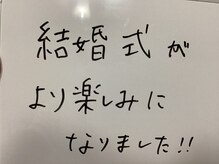 結婚式が
より楽しみに
なりました!!